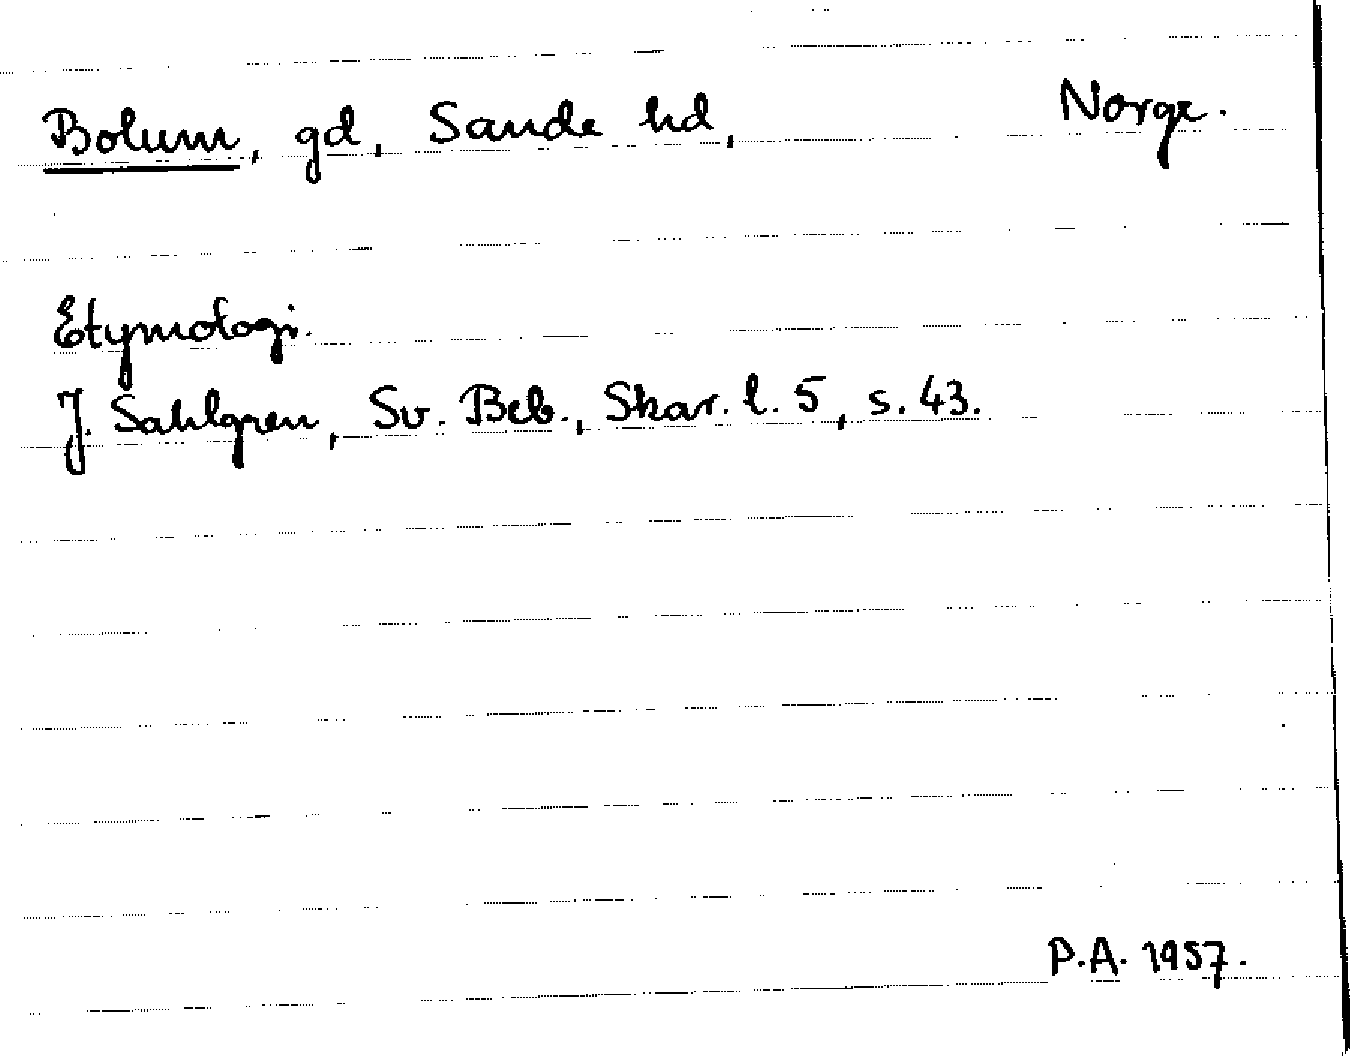 Bolum, gd, Sande hd, Norge.
Etymologi.
J. Sahlgren, Sv. Beb., Skar. l. 5, s. 43.
P.A. 1957.